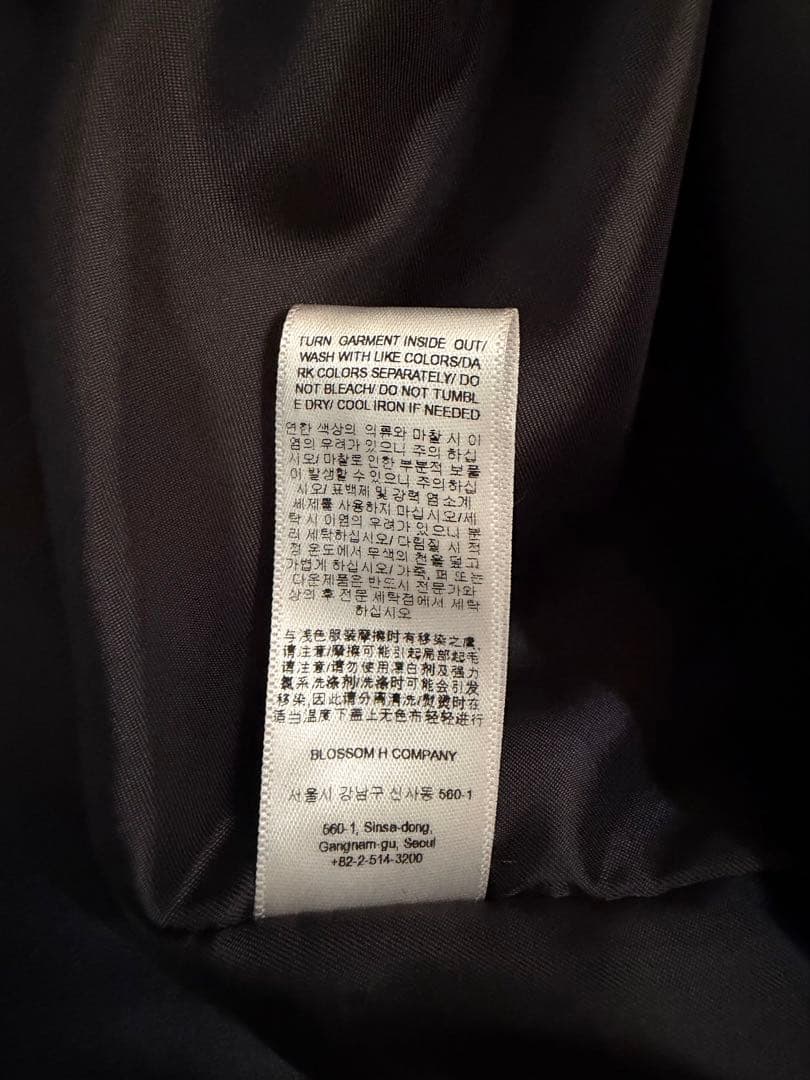 TURN GARMENT INSIDE OUT/
WASH WITH LIKE COLORS/DA
RK COLORS SEPARATELY/ DO
NOT BLEACH/ DO NOT TUMBL
E DRY/ COOL IRON IF NEEDED
연한 색상의 의류와 마찰 시 이
염의 우려가 있으니 주의 하십
시오/ 마찰로 인한 부분적 보풀
이 발생할 수 있으니 주의하십
시오/ 표백제 및 강력 염소계
세제를 사용하지 마십시오/세
탁 시 이염의 우려가 있으니 분
리 세탁하십시오/ 다림질 시 적
정 온도에서 무색의 천을 덮고
가볍게 하십시오/ 가죽, 퍼 또는
다운제품은 반드시 전문가와
상의 후 전문 세탁점에서 세탁
하십시오
与浅色服装摩擦时有移染之虞,
请注意/摩擦可能引起局部起毛
请注意/请勿使用漂白剂及强力
氯系洗涤剂/洗涤时可能会引发
移染,因此请分离清洗/熨烫时在
适当温度下盖上无色布轻轻进行
BLOSSOM H COMPANY
서울시 강남구 신사동 560-1
560-1, Sinsa-dong,
Gangnam-gu, Seoul
+82-2-514-3200